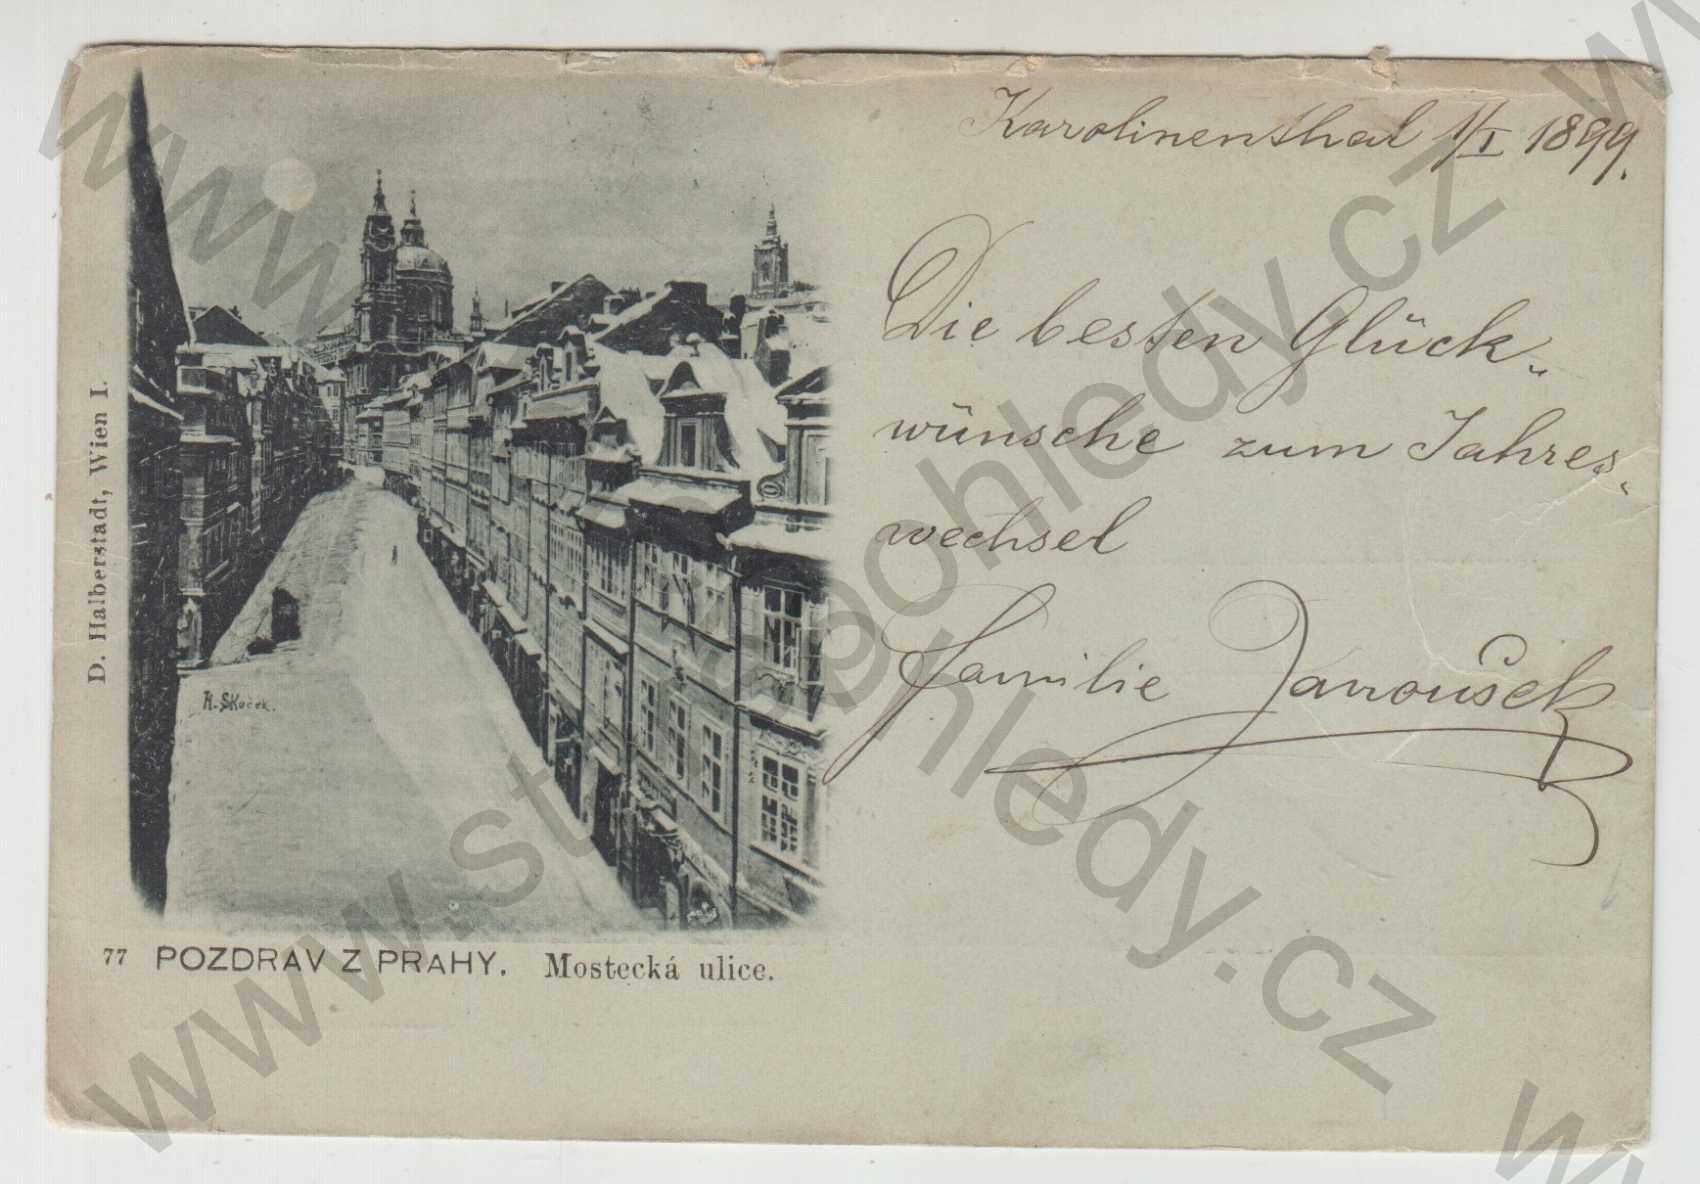 Karolinenthal 1/I 1899.
Die besten Glück„
wünsche zum Jahres„
wechsel
Familie Janoušek
D. Halberstadt, Wien I.
77 POZDRAV Z PRAHY. Mostecká ulice.
www.starepohledy.cz
www.starepohledy.cz